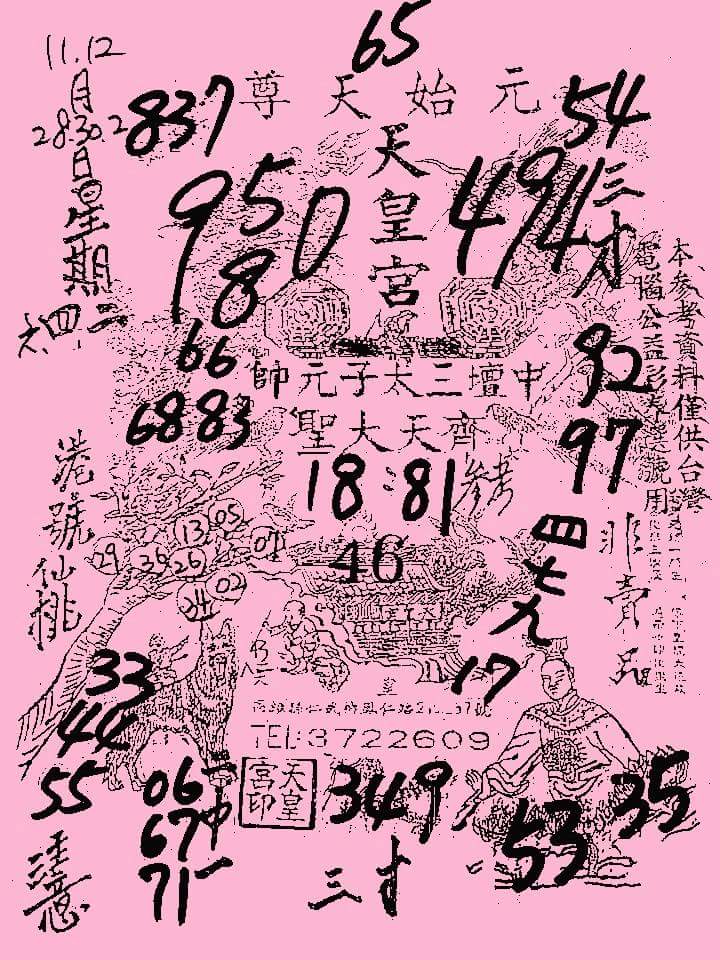 65
11.12
月
28.30.2
日
星
期
六.四.二
837
元始天尊
54
天皇宮
9580
494
三才
本參考資料僅供台灣
電腦公益彩券選號用
66
92
中壇三太子元帥
6883
齊天大聖
97
18:81
參考
港號仙桃
05
13
07
29
38
26
02
24
46
四七九
非賣品
33
17
44
TEL:3722609
55
06
67
71
二中一
天皇
宮印
349
35
53
注意
三才